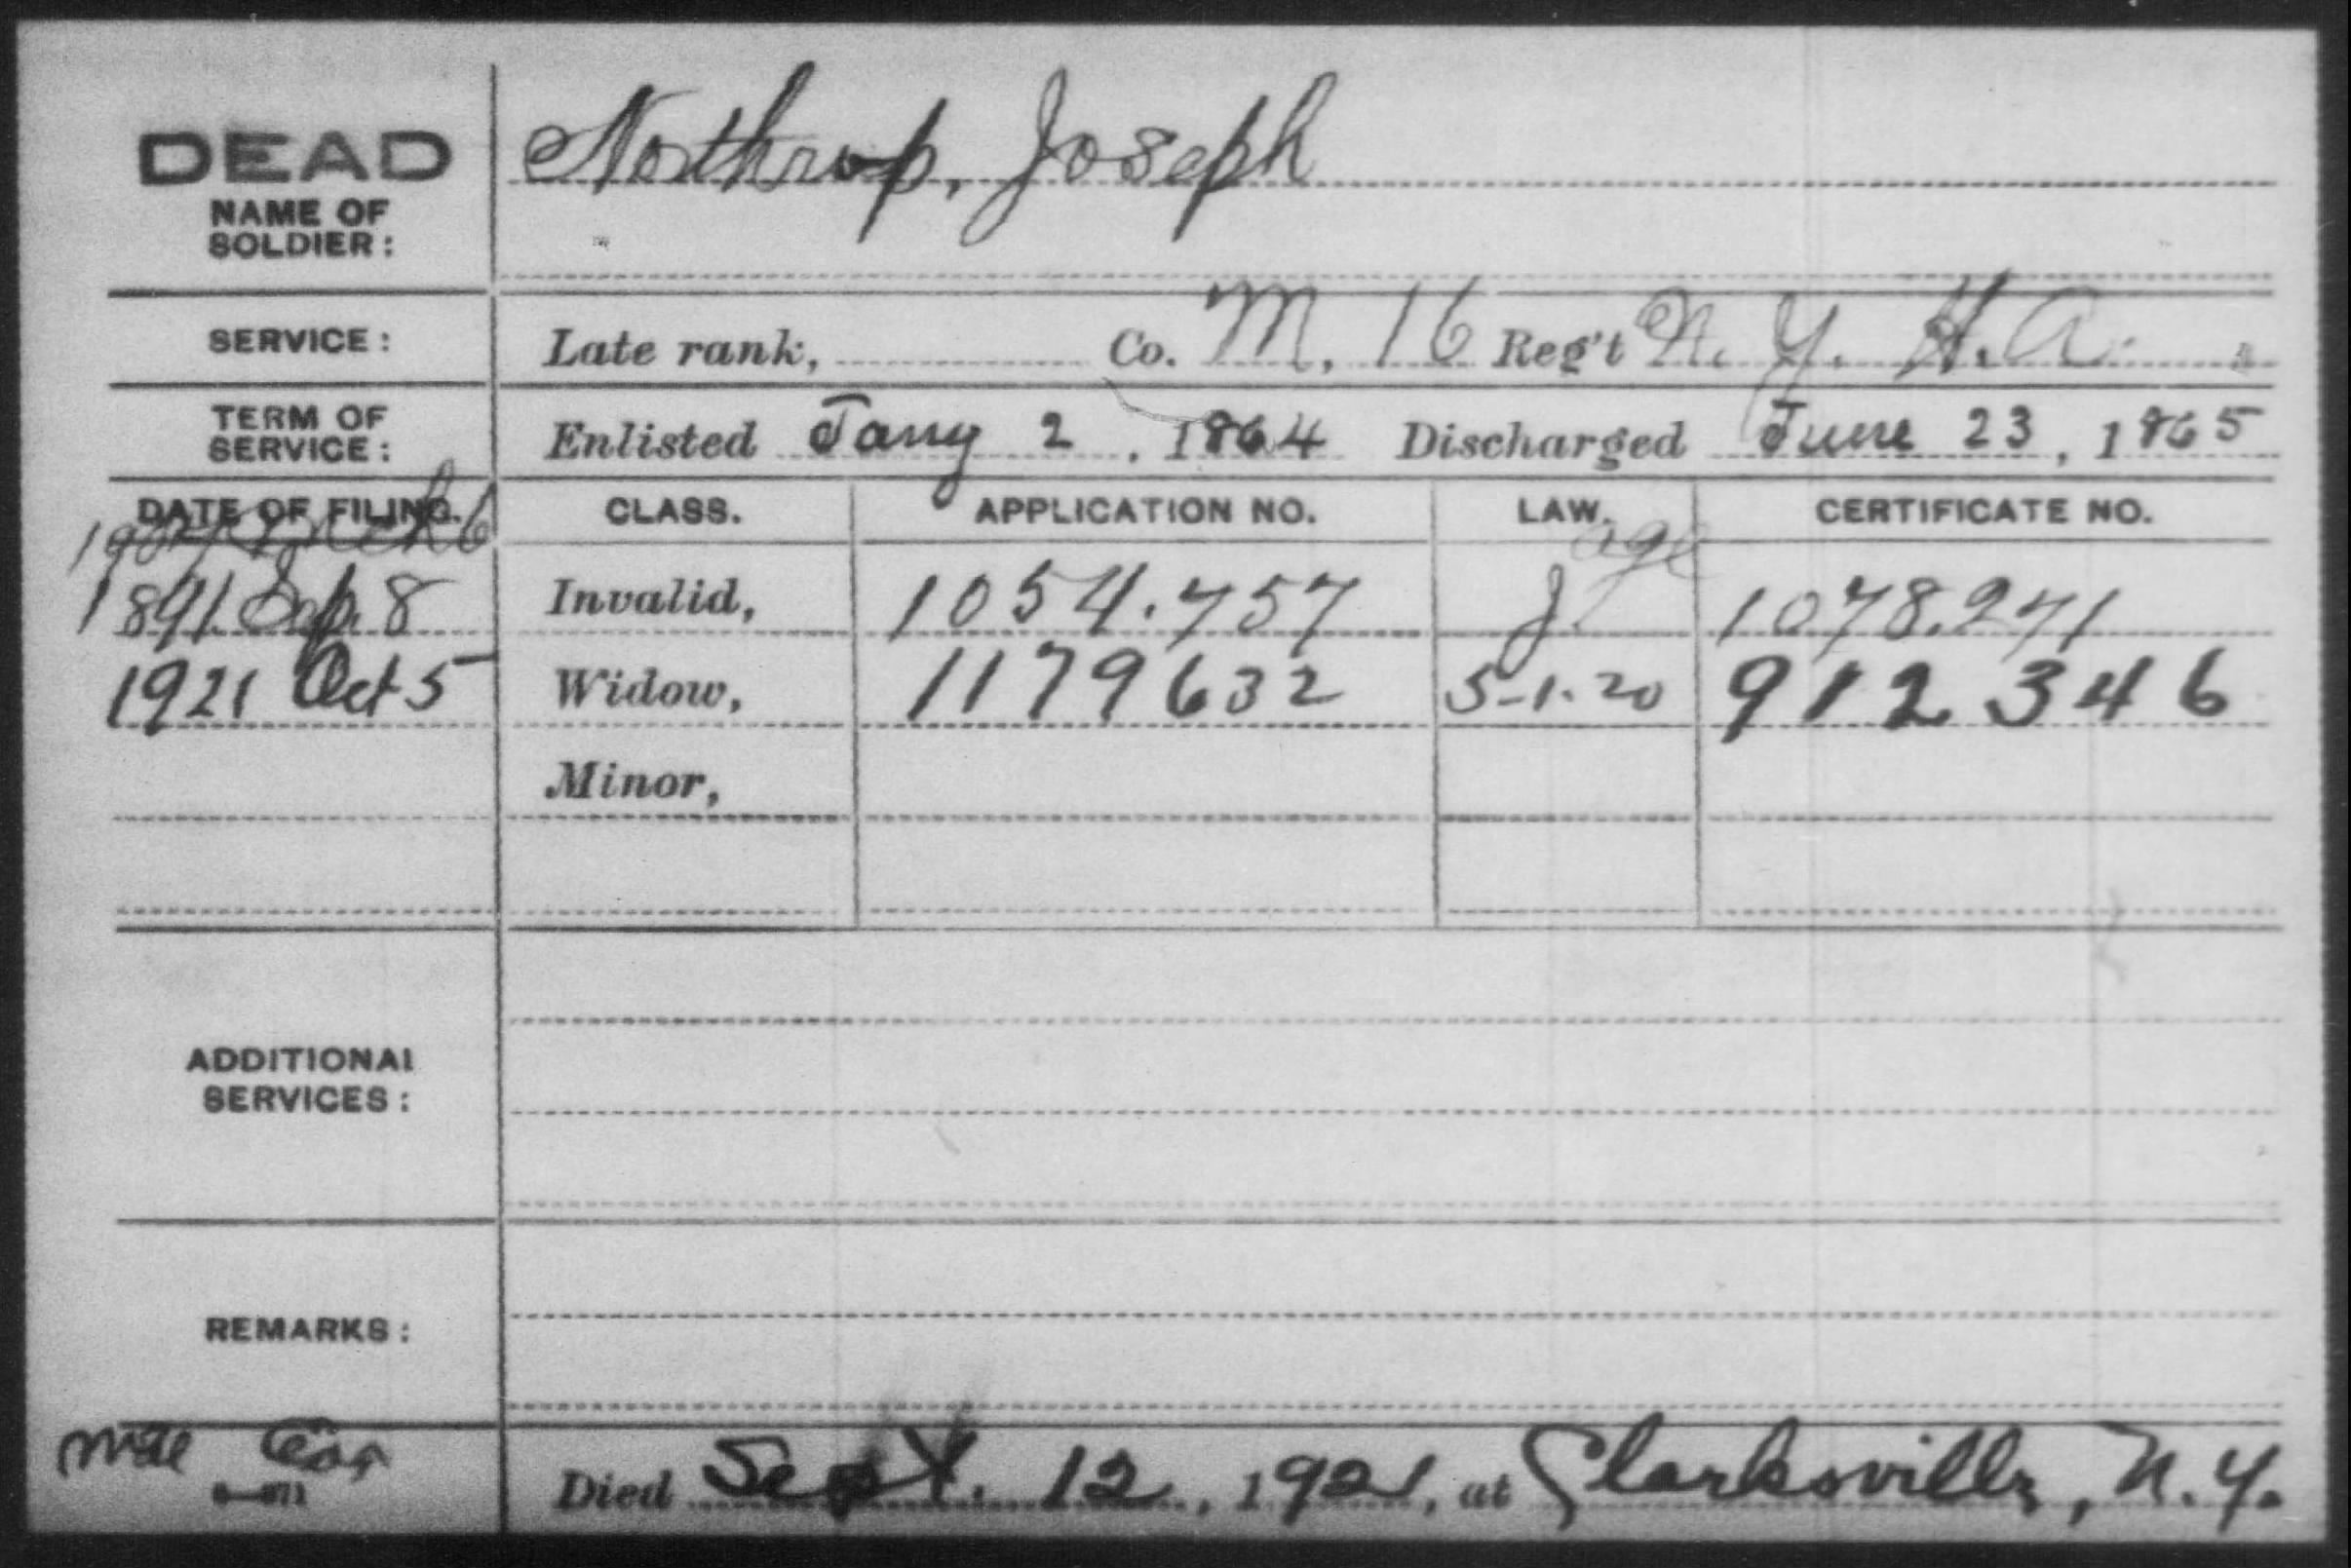 DEAD
NAME OF SOLDIER: Northrop, Joseph
SERVICE: Late rank, Co. M, 16 Reg't N. Y. H. A.
TERM OF SERVICE: Enlisted Jany 2, 1864 Discharged June 23, 1865
DATE OF FILING. CLASS. APPLICATION NO. LAW. CERTIFICATE NO.
age
1891 Sep. 8 Invalid, 1054.757 1078.271
1921 Oct 5 Widow, 1179632 5-1-20 912346
Minor,
ADDITIONAL SERVICES:
REMARKS:
Died Sept. 12, 1921, at Clarksville, N.Y.